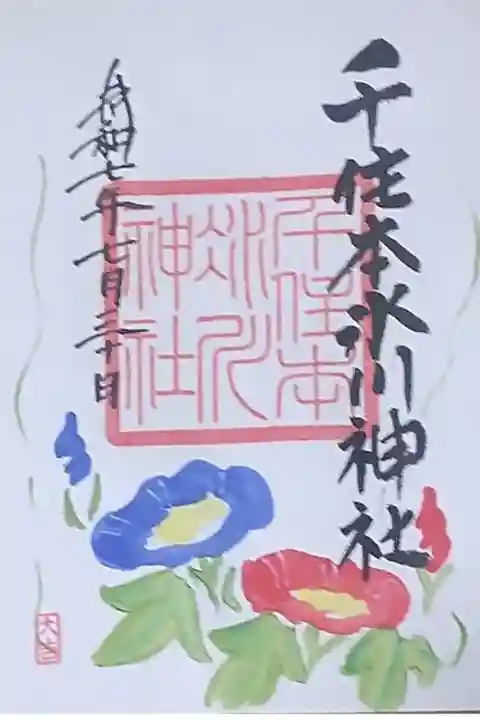 千住本氷川神社
千住本
氷川
神社
令和七年七月三十日